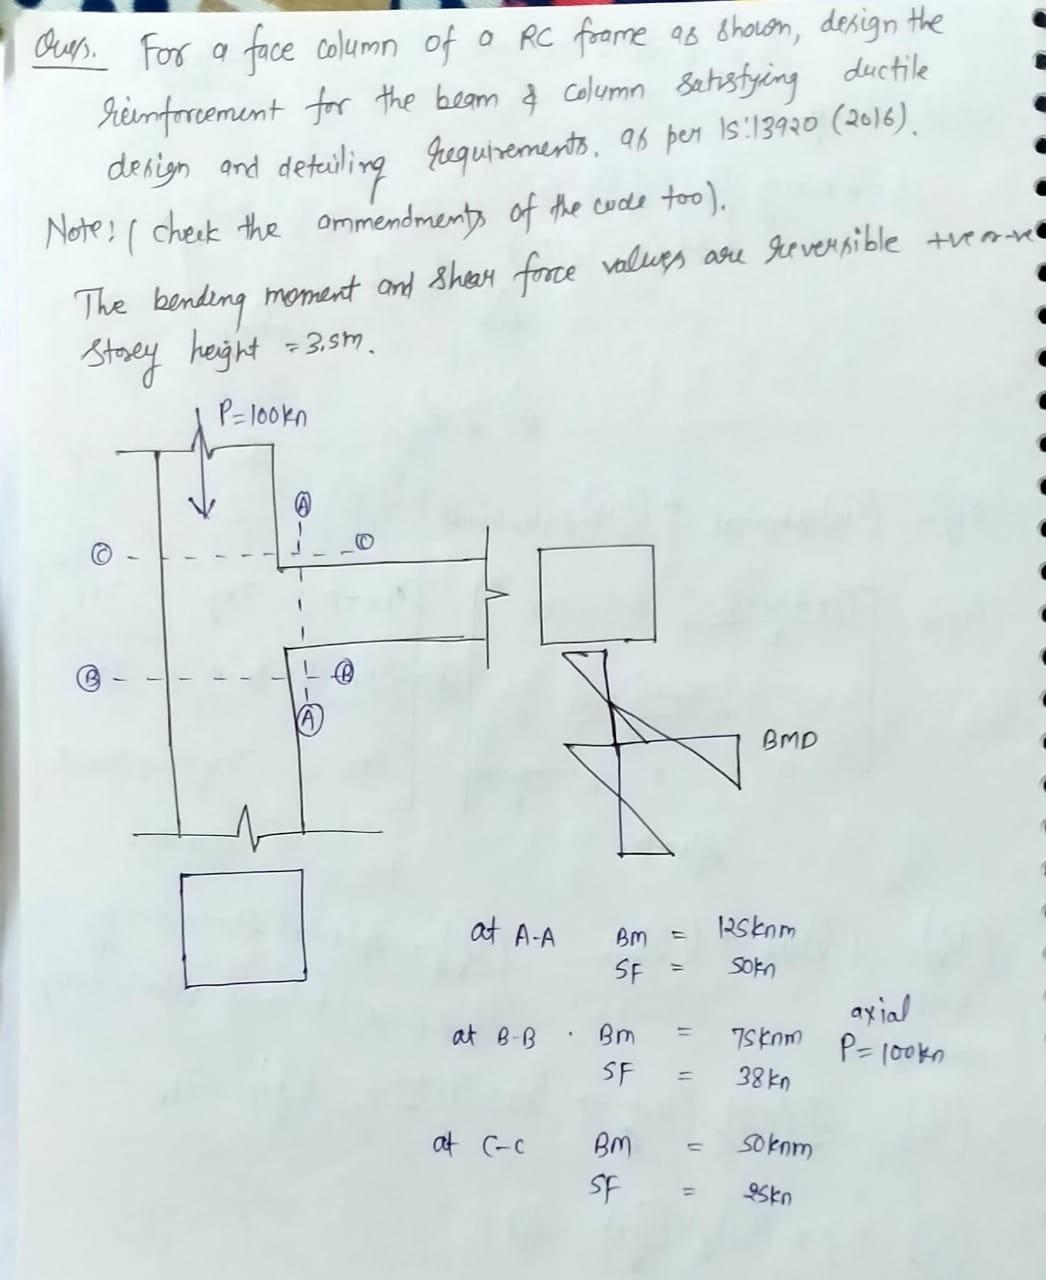 Ques. For a face column of a RC frame as shown, design the
reinforcement for the beam & column satisfying ductile
design and detailing requirements. as per IS:13920 (2016).
Note: ( check the ammendments of the code too).
The bending moment and shear force values are reversible +ve or -ve
Storey height = 3.5m.
P=100kn
A
C
C
B
B
A
BMD
at A-A BM = 125knm
SF = 50kn
at B-B . Bm = 75knm axial
SF = 38kn P=100kn
at C-C BM = 50knm
SF = 25kn